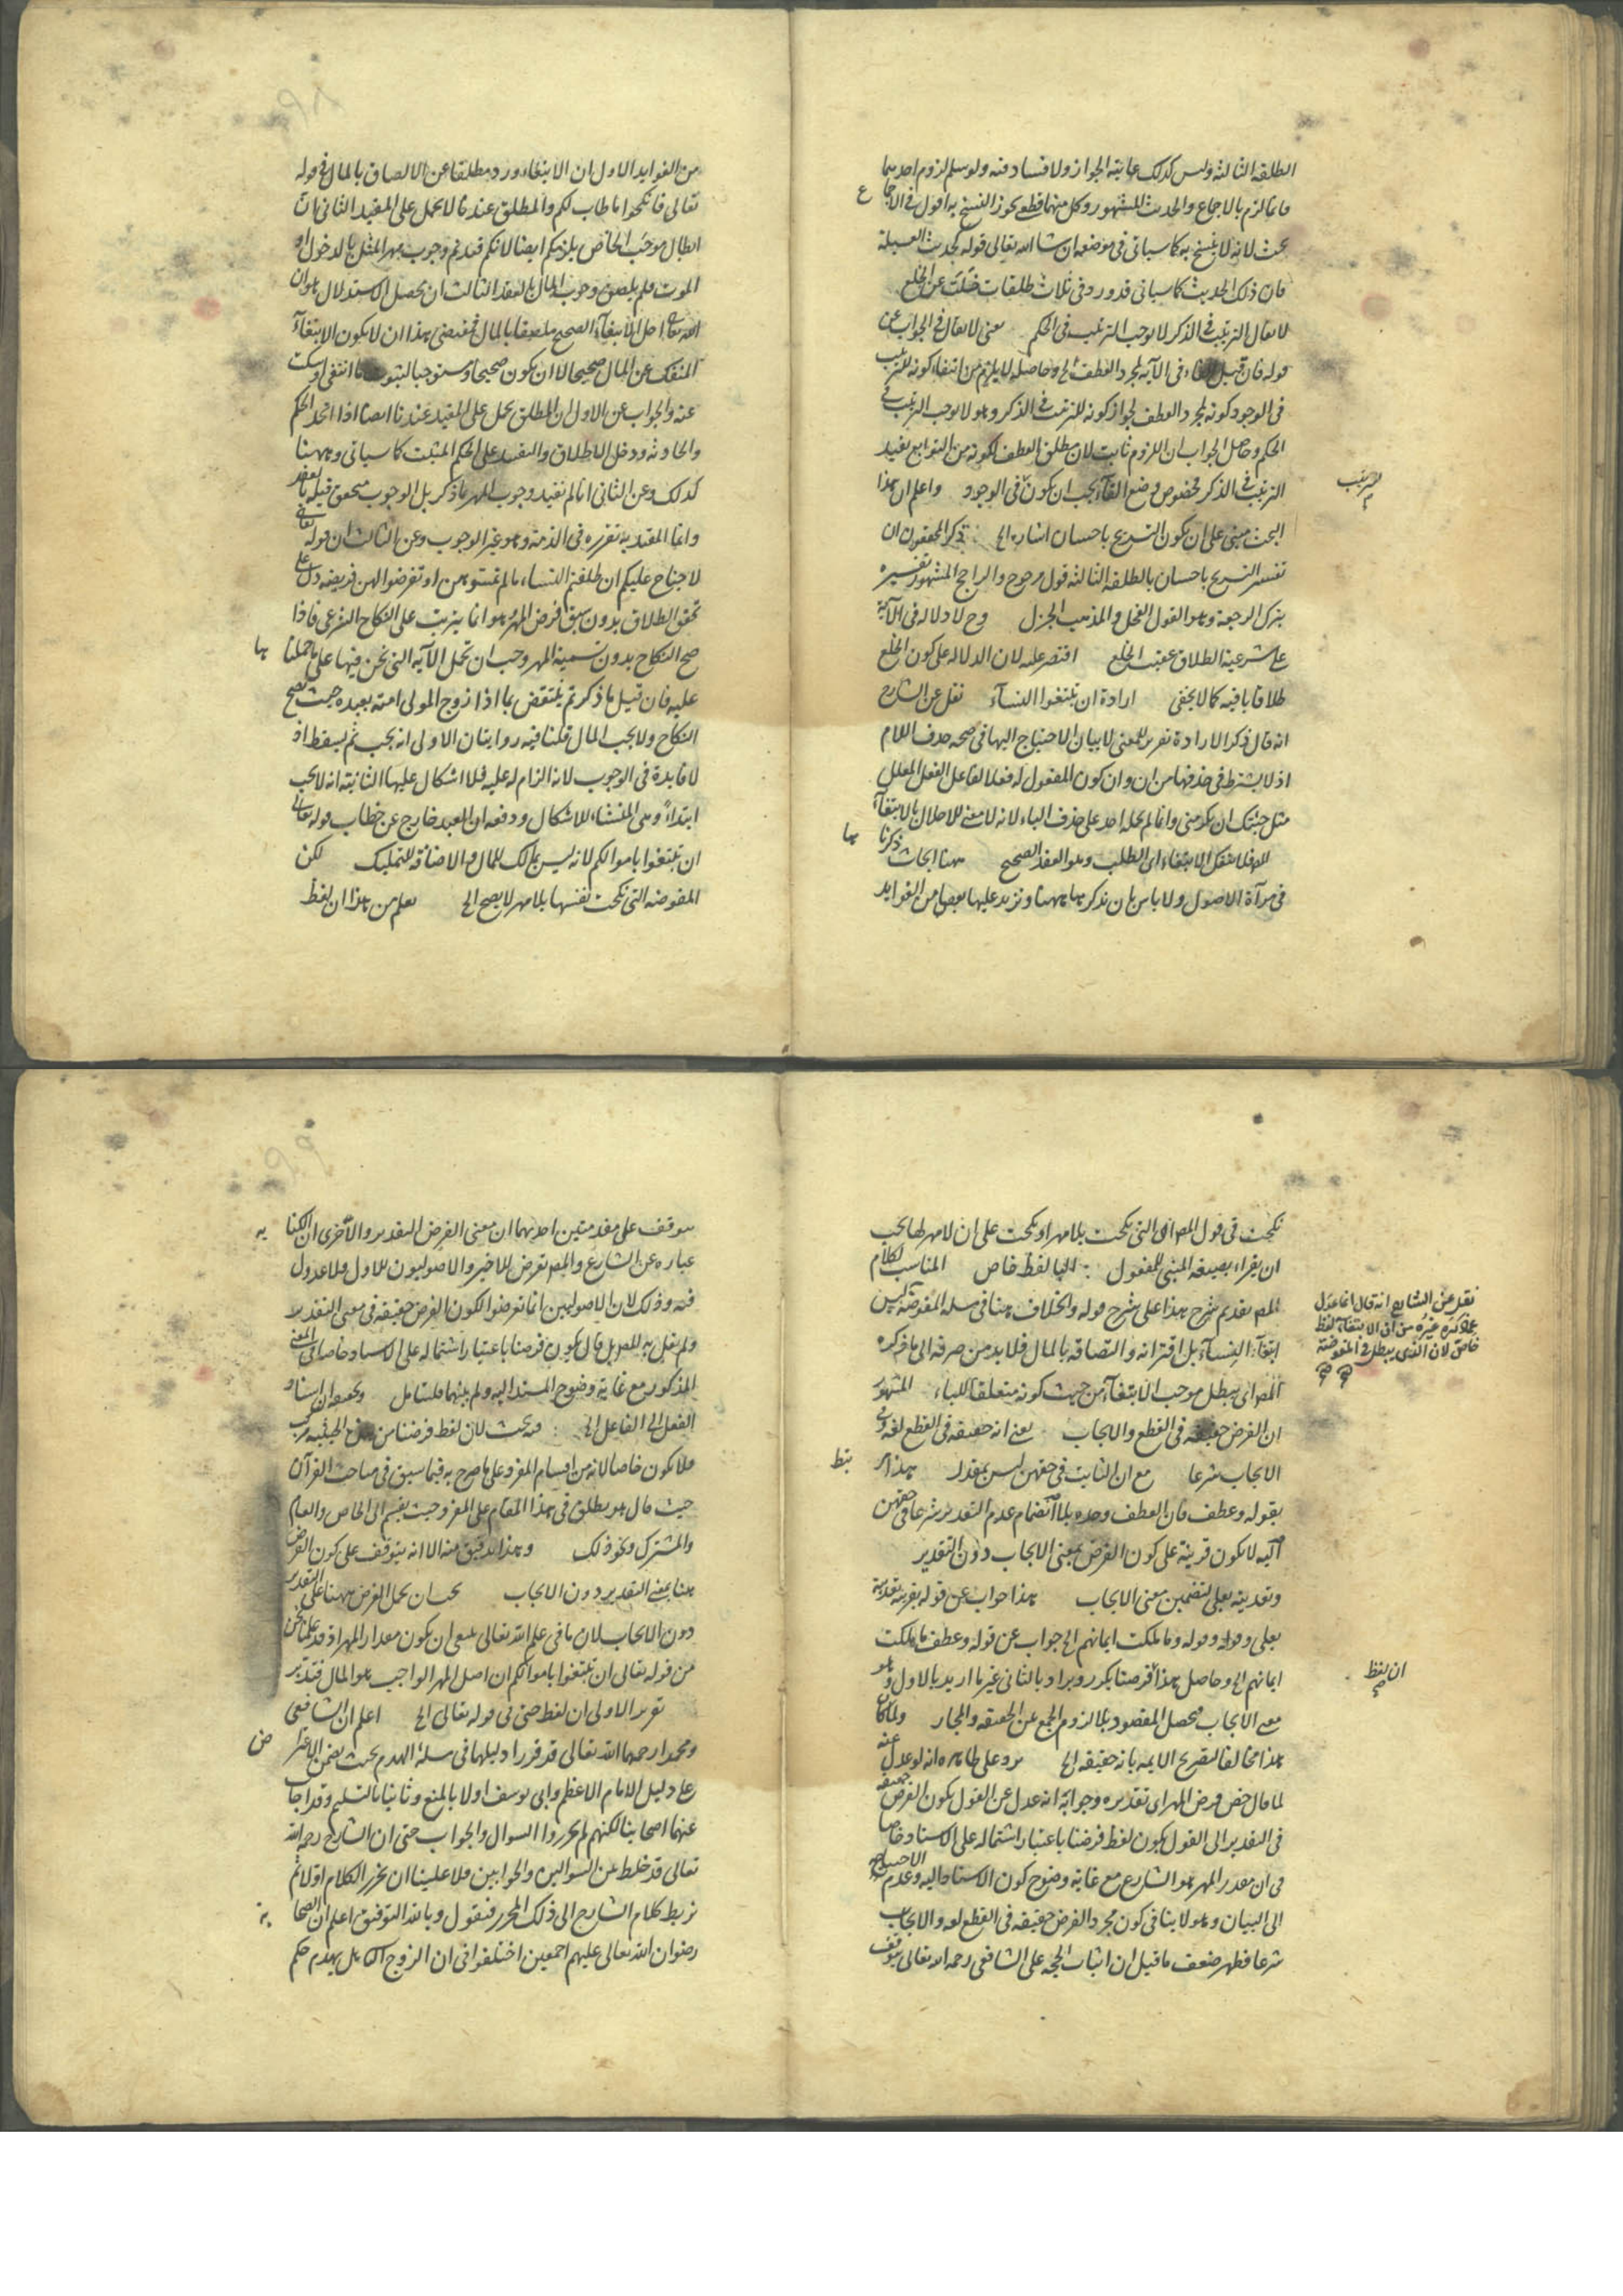 الطلقة الثالثة وليس كذلك غايته الجواز ولا فساد فيه ولو سلم لزوم احدهما
فانما لزم بالاجماع والحديث المشهور وكل منهما قطعي يجوز النسخ به اقول في الاجماع
بحث لانه لا ينسخ به كما سيأتي في موضعه ان شا الله تعالى قوله لحديث العسيلة
فان ذلك الحديث كما سيأتي قد ورد في ثلاث طلقات خلت عن الخلع
لا يقال الترتيب في الذكر لا يوجب الترتيب في الحكم يعني لا يقال في الجواب عن
قوله فان قيل الفاء في الآية لمجرد العطف الخ وحاصله لا يلزم من انتفاء كونه للترتيب
في الوجود كونه لمجرد العطف لجواز كونه للترتيب في الذكر وهو لا يوجب الترتيب في
الحكم وحاصل الجواب ان اللزوم ثابت لان مطلق العطف لكونه من التوابع يفيد
الترتيب في الذكر فخصوص وضع الفاء يجب ان يكون في الوجود واعلم ان هذا
الترتيب
البحث مبني على ان يكون التسريح باحسان اشارة الخ ذكر المحققون ان
تفسير التسريح باحسان بالطلقة الثالثة قول مرجوح والراجح المشهور تفسيره
بترك الرجعة وهو القول الفحل والمذهب الجزل وح لا دلالة في الآية
على شرعية الطلاق عقيب الخلع اقتصر عليه لان الدلالة على كون الخلع
طلاقا باقية كما لا يخفى ارادة ان تبتغوا النسآء نقل عن الشارح
انه قال ذكر الارادة تقرير للمعنى لا بيان الاحتياج اليها في صحة حذف اللام
اذ لا يشترط في حذفها من ان وان كون المفعول له فعلا لفاعل الفعل المعلل
مثل جئتك ان تكرمني وانما لم يحمله احد على حذف الباء لانه لا معنى للاحلال بالابتغآء
فلا ينفك الابتغاء اي الطلب وهو العقد الصحيح ههنا ابحاث ذكرناها
في مرآة الاصول ولا باس بان نذكرها ههنا ونزيد عليها بعضا من الفوايد
من الفوايد الاول ان الابتغاء ورد مطلقا عن الالصاق بالمال في قوله
تعالى فانكحوا ما طاب لكم والمطلق عندنا لا يحمل على المقيد الثاني ان
ابطال موجب الخاص يلزمكم ايضا لانكم قيدتم وجوب مهر المثل بالدخول او
الموت فلم يلصق وجوب المال بالعقد الثالث ان يحصل الاستدلال هو ان
الله تعالى احل الابتغآء الصحيح ملصقا بالمال فمقتضى هذا ان لا يكون الابتغآء
المنفك عن المال صحيحا لا ان يكون صحيحا ومستوجبا لثبوت ما انتفى او سكت
عنه والجواب عن الاول ان المطلق يحمل على المقيد عندنا ايضا اذا اتحد الحكم
والحادثة ودخل الاطلاق والتقييد على الحكم المثبت كما سيأتي وههنا
كذلك وعن الثاني انا لم نقيد وجوب المهر بما ذكر بل الوجوب متحقق قبله بالعقد
وانما المقيد به تقرره في الذمة وهو غير الوجوب وعن الثالث ان قوله تعالى
لا جناح عليكم ان طلقتم النساء ما لم تمسوهن او تفرضوا لهن فريضة دل على
تحقق الطلاق بدون سبق فرض المهر وهو انما يترتب على النكاح الشرعي فاذا
صح النكاح بدون تسمية المهر وجب ان تحمل الآية التي نحن فيها على ما حملناها
عليه فان قيل ما ذكرتم ينتقض بما اذا زوج المولى امته بعبده حيث يصح
النكاح ولا يجب المال قلنا فيه روايتان الاولى انه يجب ثم يسقط اذ
لا فايدة في الوجوب لانه الزام له عليه فلا اشكال عليها الثانية انه لا يجب
ابتداءً وهي المنشاء للاشكال ودفعه ان العبد خارج عن خطاب قوله تعالى
ان تبتغوا باموالكم لانه ليس بمالك للمال والاضافة للتمليك لكن
المفوضة التي نكحت نفسها بلا مهر لا يصح الخ يعلم من هذا ان لفظ
نكحت في قول المص اي التي نكحت بلا مهر او نكحت على ان لا مهر لها يجب
ان يقراء بصيغة المبني للمفعول البا لفظ خاص المناسب لكلام
نقل عن الشارح انه قال انما عدل
عما ذكره غيره من ان الابتغآء لفظ
خاص لان الذي يبطل في المفوضة
المص تقديم شرح هذا على شرح قوله والخلاف ههنا في مسلة المفوضة ليس
ابتغآء النسآء بل اقترانه والتصاقه بالمال فلا بد من صرفه الى ما ذكره
المص اي يبطل موجب الابتغآء من حيث كونه متعلقا للباء المشهور
ان الفرض حقيقة في القطع والايجاب يعني انه حقيقة في القطع لغة وفي
الايجاب شرعا مع ان الثابت في حقهن ليس بمقدر هذا
بقوله وعطف فان العطف وحده بلا انضمام عدم التقدير شرعا في حقهن
اليه لا يكون قرينة على كون الفرض بمعنى الايجاب دون التقدير
وتعديته بعلى لتضمين معنى الايجاب هذا جواب عن قوله بقرينة تعديته
بعلى وقوله وقوله وما ملكت ايمانهم الخ جواب عن قوله وعطف ما ملكت
ايمانهم الخ وحاصل هذا ان لفظ فرضنا يكرر ويراد بالثاني غير ما اريد بالاول وهو
معنى الايجاب فيحصل المقصود بلا لزوم الجمع عن الحقيقة والمجاز ولما كان
هذا مخالفا لتصريح الايمة بانه حقيقة الخ يرد على ظاهره انه لو عدل عنه
لما قال خص فرض المهر اي تقديره وجوابه انه عدل عن القول بكون الفرض حقيقة
في التقدير الى القول بكون لفظ فرضنا باعتبار اشتماله على الاسناد خاصا
في ان مقدر المهر هو الشارع مع غاية وضوح كون الاسناد اليه وعدم الاحتياج
الى البيان وهو لا ينافي كون مجرد الفرض حقيقة في القطع لغة والايجاب
شرعا فظهر ضعف ما قيل ان اثبات الحجة على الشافعي رحمه الله تعالى يتوقف
يتوقف على مقدمتين احديهما ان معنى الفرض التقدير والاخرى ان الكناية
عبارة عن الشارع والمص تعرض للاخير والاصوليون للاول فلا عدول
فيه وذلك لان الاصوليين انما تعرضوا لكون الفرض حقيقة في معنى التقدير
ولم يقل به المص بل قال بكون فرضنا باعتبار اشتماله على الاسناد خاصا في المعنى
المذكور مع غاية وضوح المسند اليه ولم يبينها فليتامل وتحقيقه ان اسناد
الفعل الى الفاعل الخ فيه بحث لان لفظ فرضنا من هذه الحيثية مركب
فلا يكون خاصا لانه من اقسام المفرد على ما صرح به فيما سبق في مباحث القرآن
حيث قال هو يطلق في هذا المقام على المفرد حيث يقسم الى الخاص والعام
والمشترك ونحو ذلك وهذا تدقيق منه الا انه يتوقف على كون الفرض
ههنا بمعنى التقدير دون الايجاب يجب ان يحمل الفرض ههنا على التقدير
دون الايجاب لان ما في علم الله تعالى ينبغي ان يكون مقدار المهر اذ قد علمنا نحن
من قوله تعالى ان تبتغوا باموالكم ان اصل المهر الواجب هو المال فتدبر
تقرير الاولى ان لفظ حتى في قوله تعالى الخ اعلم ان الشافعي
ومحمدا رحمهما الله تعالى قد قررا دليلهما في مسلة الهدم بحيث يتضمن الاعتراض
على دليل الامام الاعظم وابي يوسف اولا بالمنع وثانيا بالتسليم وقد اجاب
عنهما اصحابنا لكنهم لم يحرروا السوال والجواب حتى ان الشارح رحمه الله
تعالى قد خلط بين السوالين والجوابين فلا علينا ان نحرر الكلام اولا ثم
نربط كلام الشارح الى ذلك المحرر فنقول وبالله التوفيق اعلم ان الصحابة
رضوان الله تعالى عليهم اجمعين اختلفوا في ان الزوج الثاني هل يهدم حكم